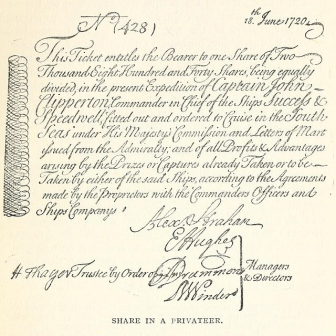 No (428)
18.th June 1720
This Ticket entitles the Bearer to one Share of Two
Thousand Eight Hundred and Forty Shares, being equally
divided, in the present Expedition of Captain John
Clipperton Commander in Chief of the Ships Success &
Speedwell, fitted out and ordered to Cruise in the South
Seas under His Majestys Commission and Letters of Mart
issued from the Admiralty; and of all Profits & Advantages
arising by the Prizes or Captures already Taken or to be
Taken by either of the said Ships, according to the Agreements
made by the Proprietors with the Commanders Officers and
Ships Companys
Alex Strahan
E Hughes
H Thager Trustee by Order of Drummond
Winder
Managers
& Directors
SHARE IN A PRIVATEER.